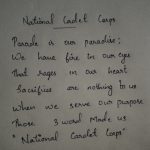 National Cadet Corps
Parade is our paradise;
We have fire in our eyes
That rages in our heart
Sacrifies are nothing to us
when we serve our purpose
Those 3 word Made us
"National Cardet Corps"